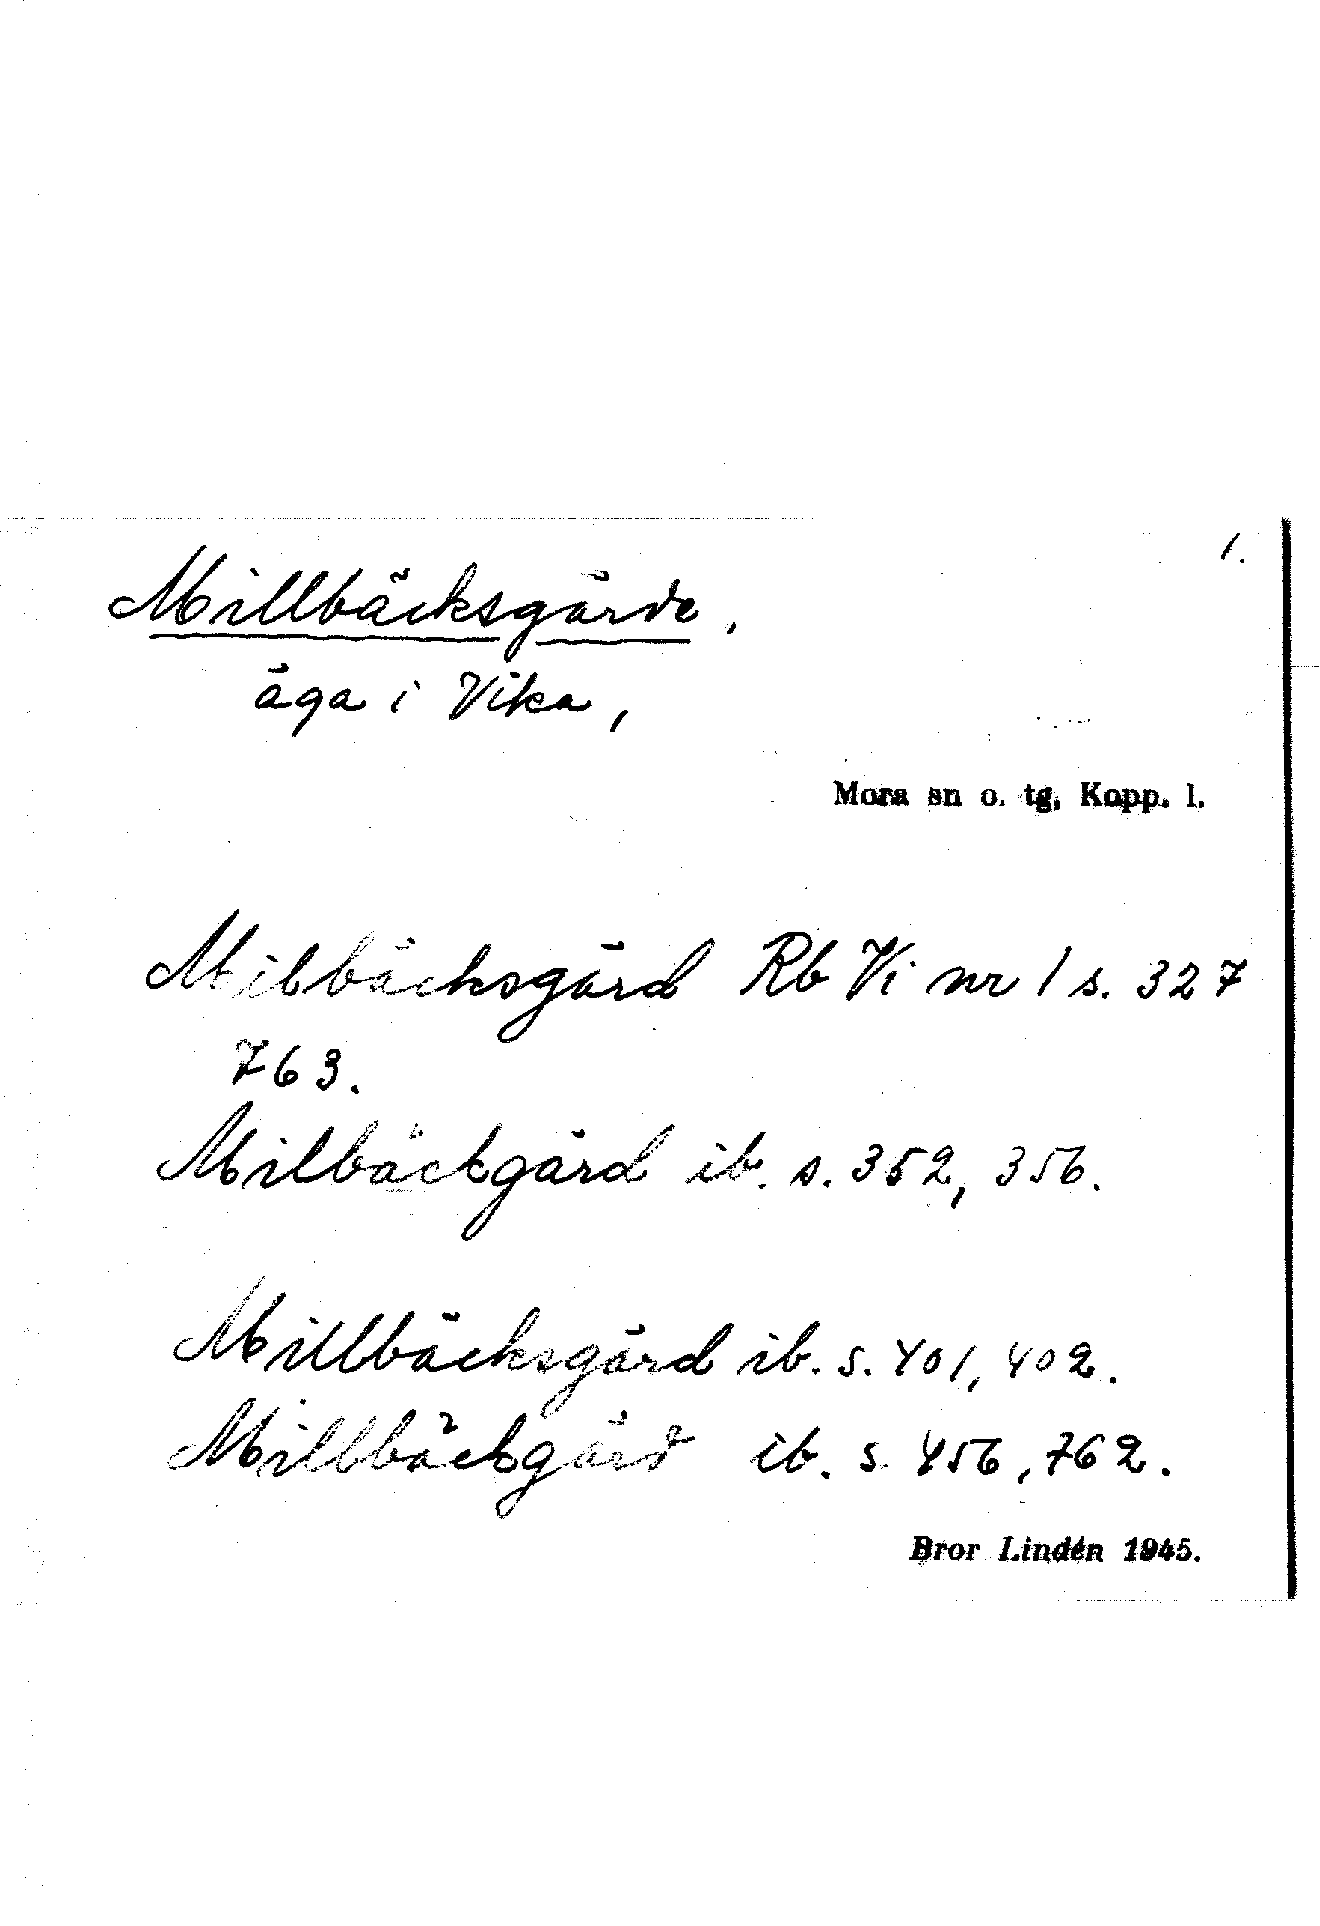 1.
Millbäcksgärde,
äga i Vika,
Mora sn o. tg, Kopp. l.
Milbäcksgärd Rb Vi nr 1 s. 327
763.
Milbäckgärd ib. s. 352, 356.
Millbäcksgärd ib. s. 401, 402.
Millbäckgärd ib. s. 456, 762.
Bror Lindén 1945.